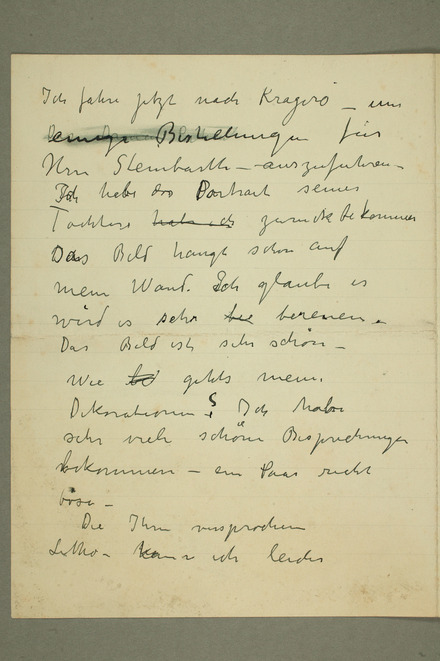 Ich fahre jetzt nach Kragerö – um
einige Bestellungen für
Hrn Steinbarth – auszuführen –
Ich habe das Portrait seiner
Tochter hab ich zurück bekommen
Das Bild hängt schon auf
mein Wand. Ich glaube es
wird es sehr bereuen.
Das Bild ist sehr schön –
Wie gehts mein
Dekorationen? Ich habe
sehr viele schöne Besprechungen
bekommen – ein Paar recht
böse –
Die Ihm versprochen
Litho– kann ich leider